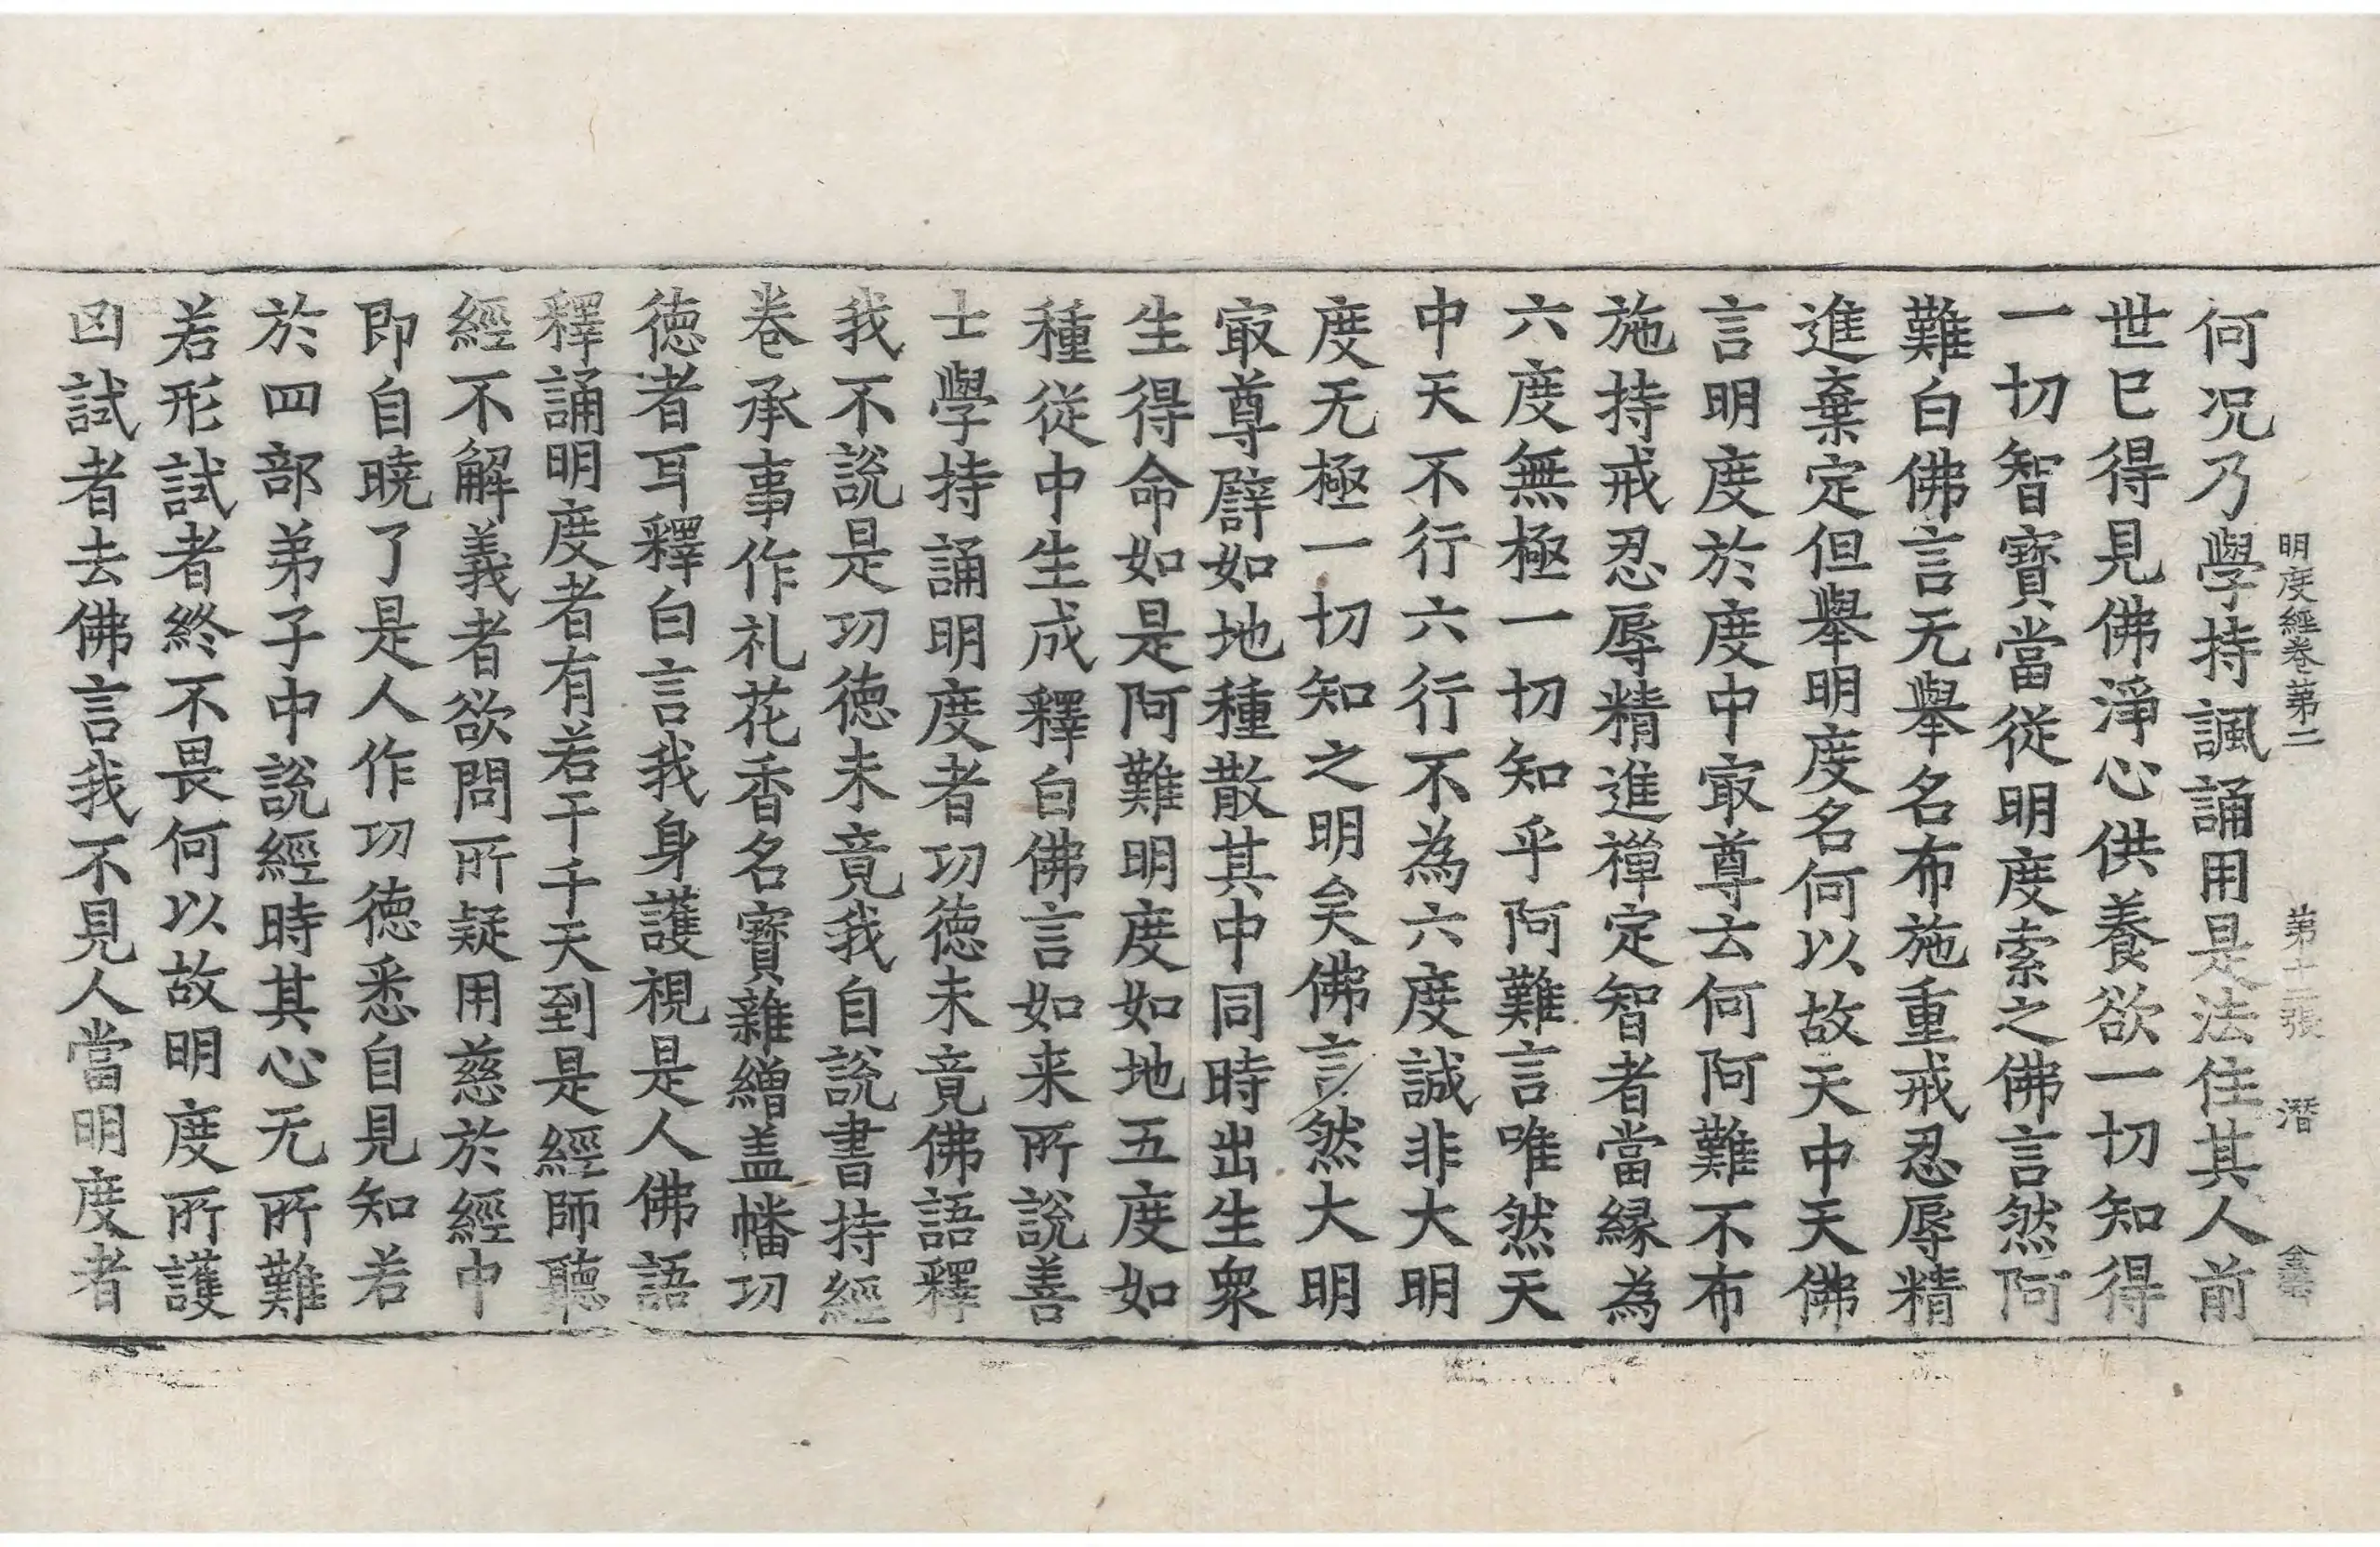 明度經卷第二 第十二張 潛
何況乃學持諷誦用是法住其人前
世已得見佛淨心供養欲一切知得
一切智寶當從明度索之佛言然阿
難白佛言无舉名布施重戒忍辱精
進棄定但舉明度名何以故天中天佛
言明度於度中㝡尊云何阿難不布
施持戒忍辱精進禪定智者當緣為
六度無極一切知乎阿難言唯然天
中天不行六行不為六度誠非大明
度无極一切知之明矣佛言然大明
㝡尊譬如地種散其中同時出生眾
生得命如是阿難明度如地五度如
種從中生成釋白佛言如来所說善
士學持誦明度者功德未竟佛語釋
我不說是功德未竟我自說書持經
卷承事作礼花香名寶雜繒盖幡功
德者耳釋白言我身護視是人佛語
釋誦明度者有若干千天到是經師聽
經不解義者欲問所疑用慈於經中
即自曉了是人作功德悉自見知若
於四部弟子中說經時其心无所難
若形試者終不畏何以故明度所護
凶試者去佛言我不見人當明度者